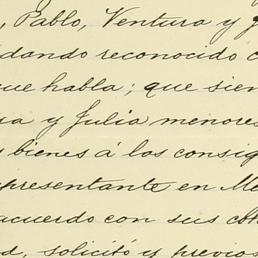 , Pablo, Ventura y J
dando reconocido c
ue habla; que sien
ia y Julia menores
bienes á los consig
epresentante en Me
acuerdo con sus
d, solicitó y previos